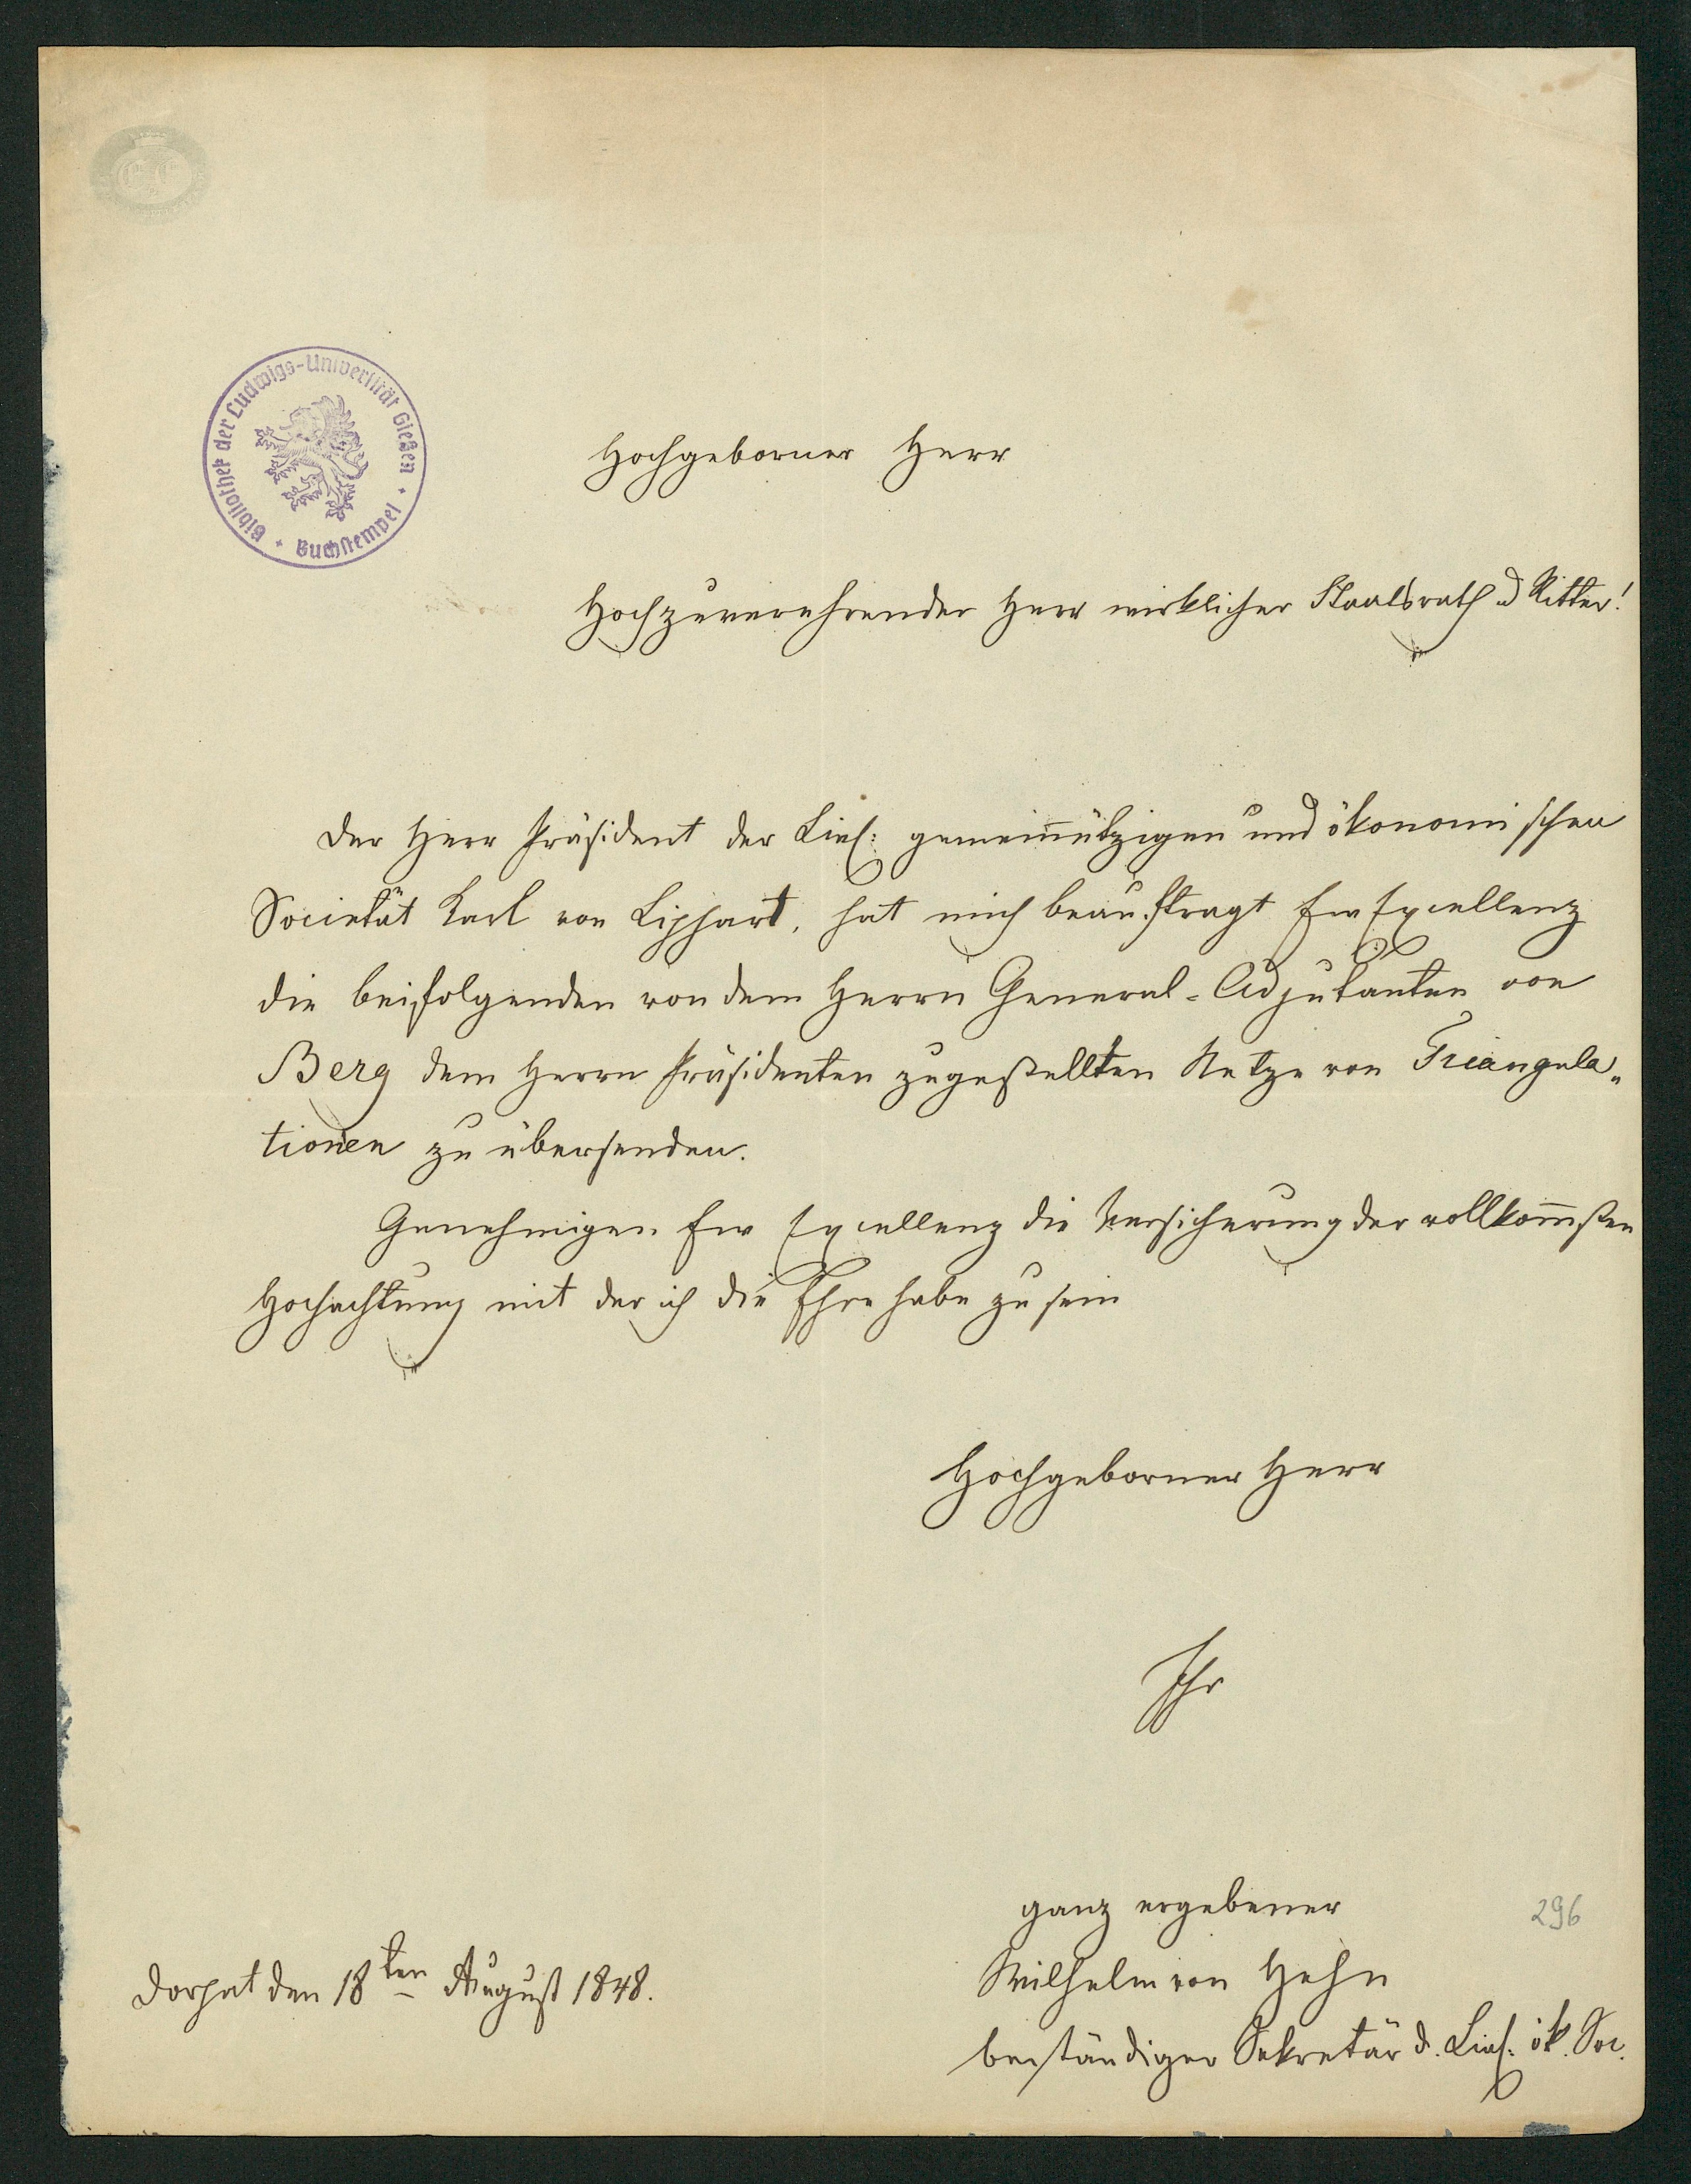 Bibliothek der Ludwigs-Universität Gießen
Buchstempel
Hochgeborner Herr
Hochzuverehrender Herr wirklicher Staatsrath u Ritter!
Der Herr Präsident der Livl: gemeinnützigen und ökonomischen
Societät Karl von Liphart, hat mich beauftragt Ew Excellenz
die beifolgenden von dem Herrn General-Adjutanten von
Berg dem Herrn Präsidenten zugestellten Netze von Triangula-
tionen zu übersenden.
Genehmigen Ew Excellenz die Versicherung der vollkom̅sten
Hochachtung mit der ich die Ehre habe zu sein
Hochgeborner Herr
Ihr
ganz ergebener
296
Wilhelm von Hehn
Dorpat den 18ten August 1848.
beständiger Sekretär d. Livl: ök. Soc.